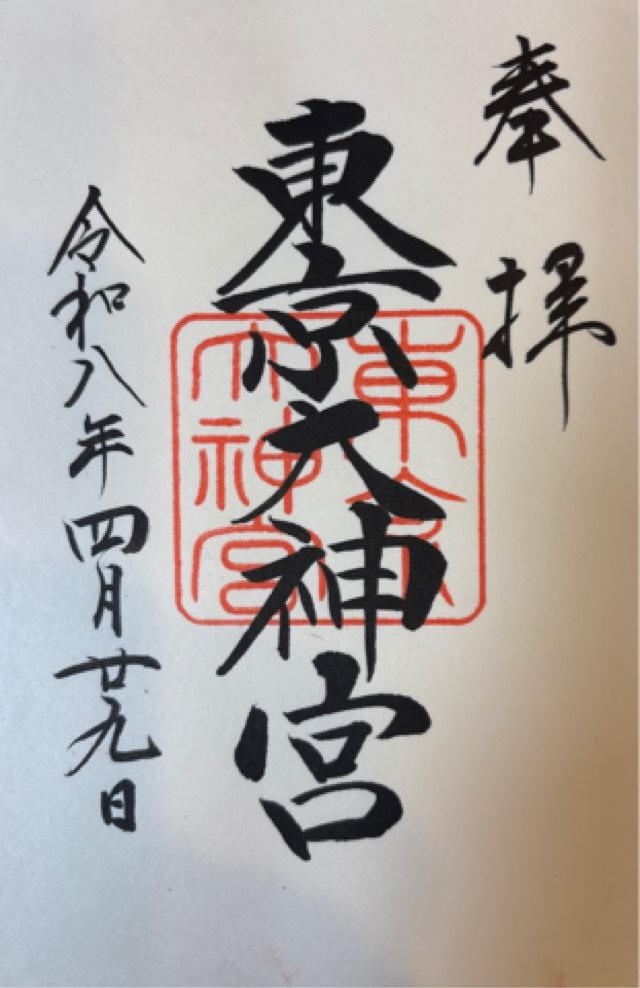 奉拝
東京大神宮
東京
大神宮
令和八年四月廿九日